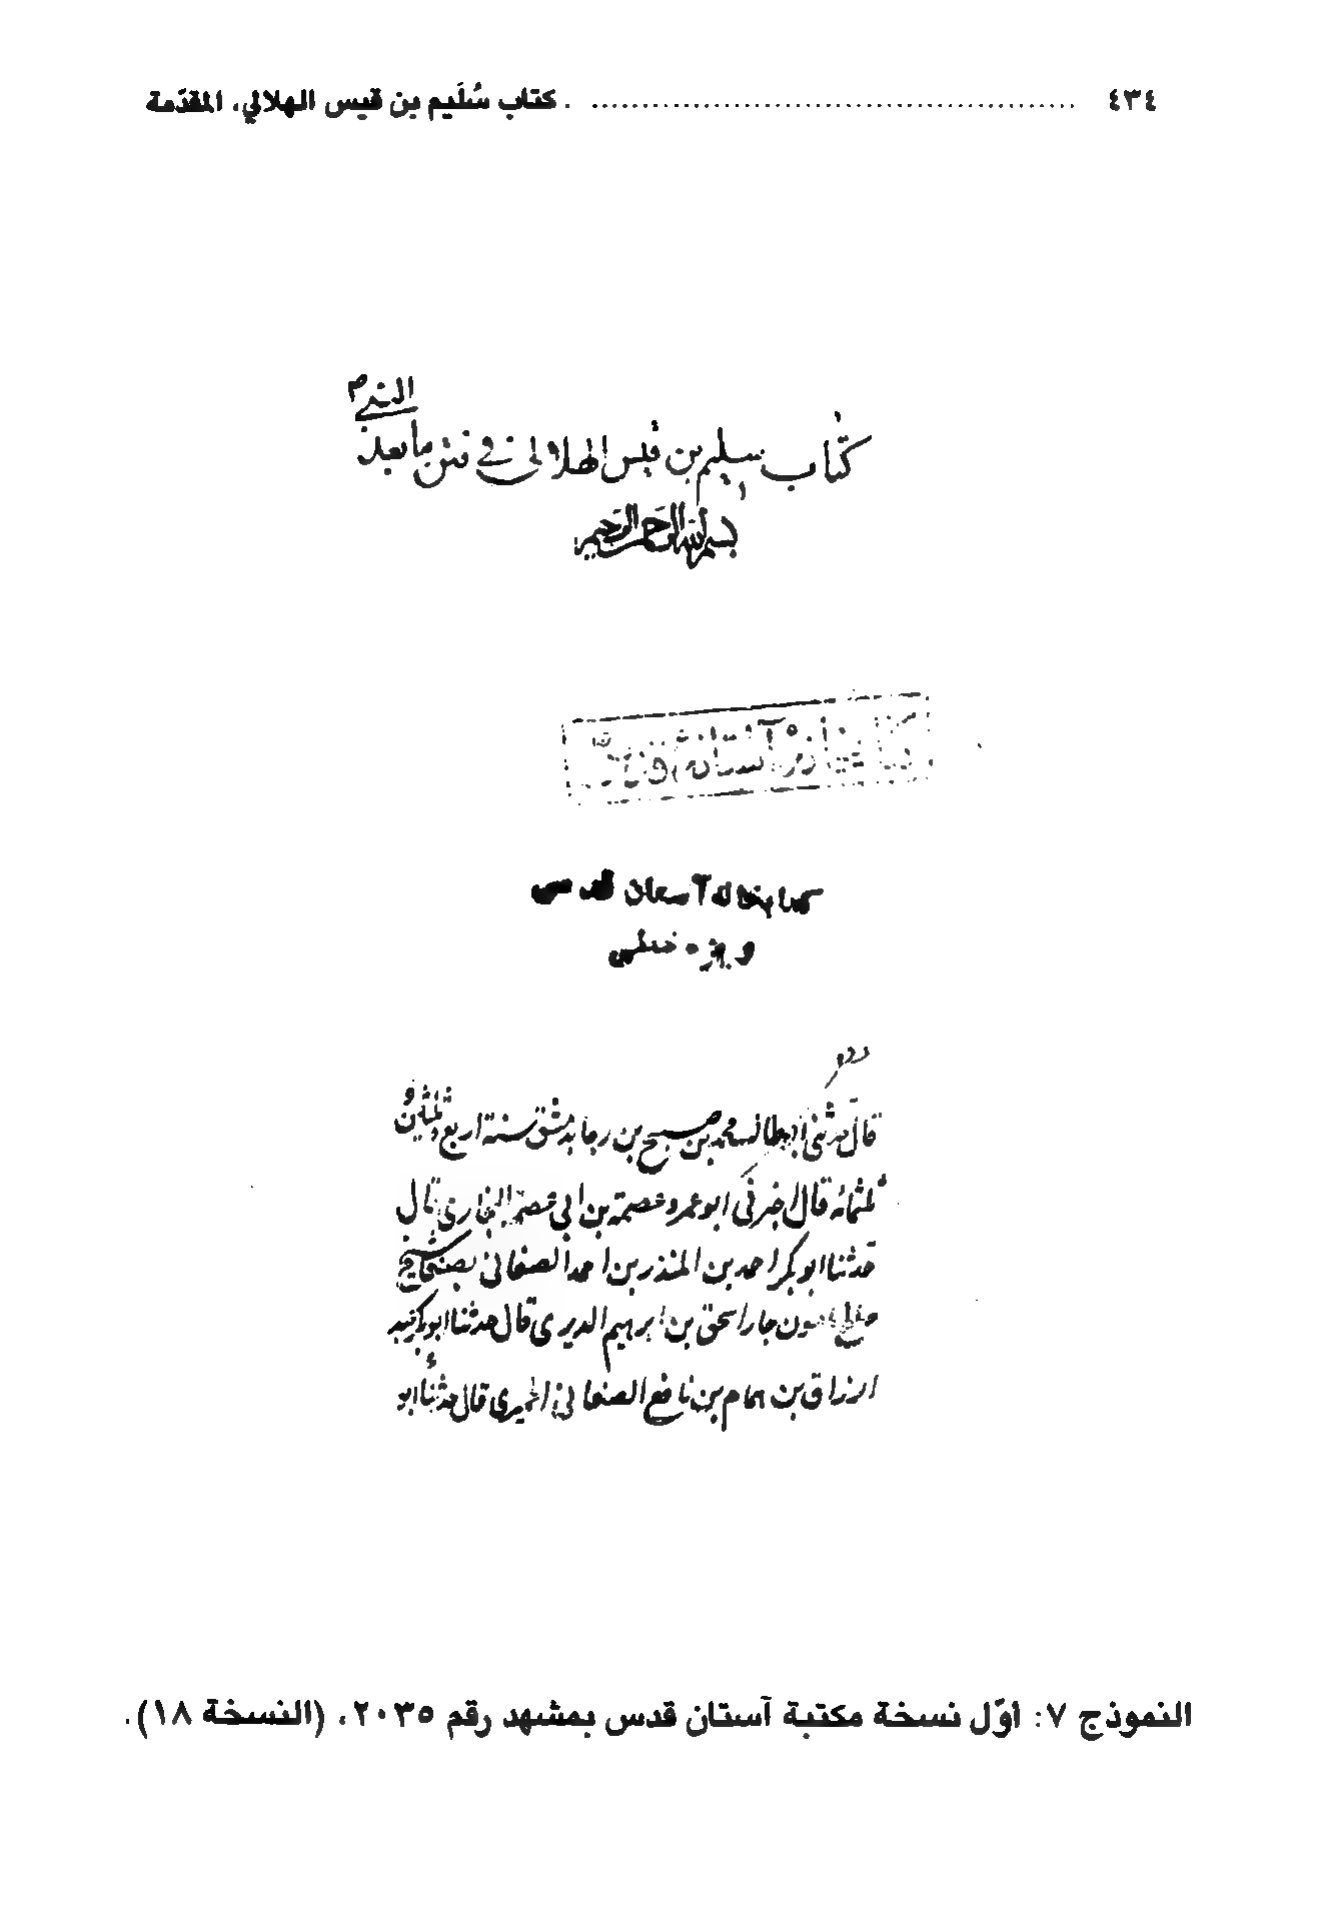 ٤٣٤ ........................................ كتاب سُلَيم بن قيس الهلالي، المقدّمة
النبي م
كتاب سليم بن قيس الهلالى في فتن ما بعد
بسم الله الرحمن الرحيم
كتابخانه آستان قدس
كتابخانه آستان قدس
ويژه خطى
قال حدثنى ابو طالب محمد بن صبيح بن رجا بدمشق سنة اربع وثلثين و
ثلثمائه قال اخبرنى ابو عمرو عصمة بن ابى عصمة البخارى قال
حدثنا ابو بكر احمد بن المنذر بن احمد الصنعانى بصنعا شيخ
صالح مامون جار اسحق بن ابرهيم الديرى قال حدثنا ابو بكر عبد
الرزاق بن همام بن نافع الصنعانى الحميرى قال حدثنا ابو
النموذج ٧: اوّل نسخة مكتبة آستان قدس بمشهد رقم ٢٠٣٥، (النسخة ١٨).